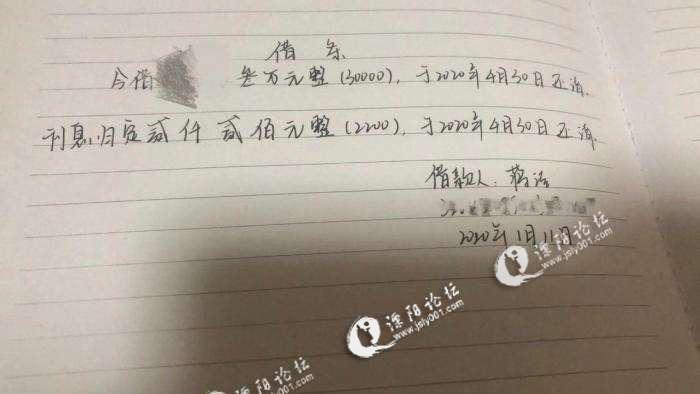 借条
今借 叁万元整(30000),于2020年4月30日还清.
利息归应贰仟贰佰元整(2200),于2020年4月30日还清
借款人:蒋洁
2020年1月11日
溧阳论坛
www.jsly001.com
溧阳论坛
www.jsly001.com
溧阳论坛